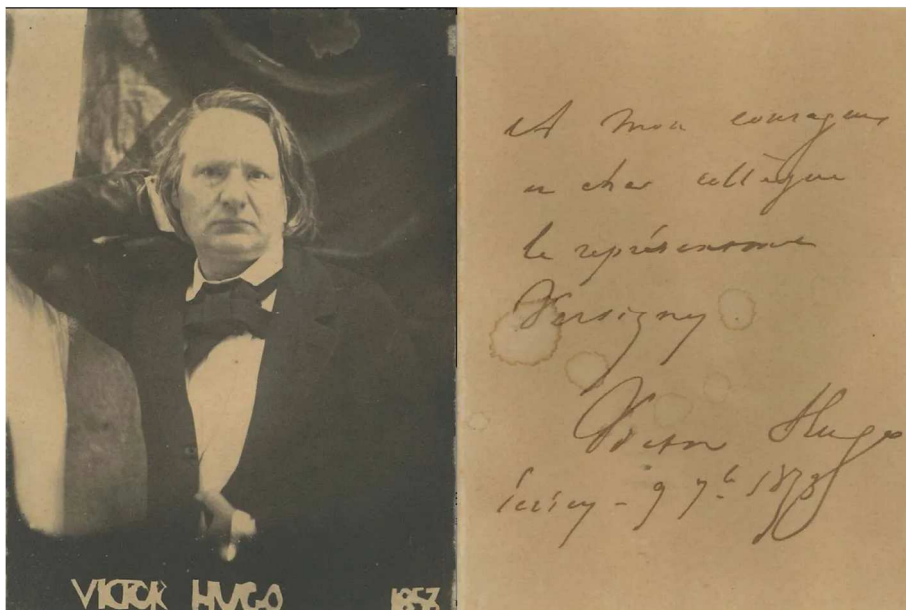 VICTOR HUGO 1853
A mon courageux
et cher collègue
le représentant
Versigny
Victor Hugo
Jersey - 9 7bre 1853